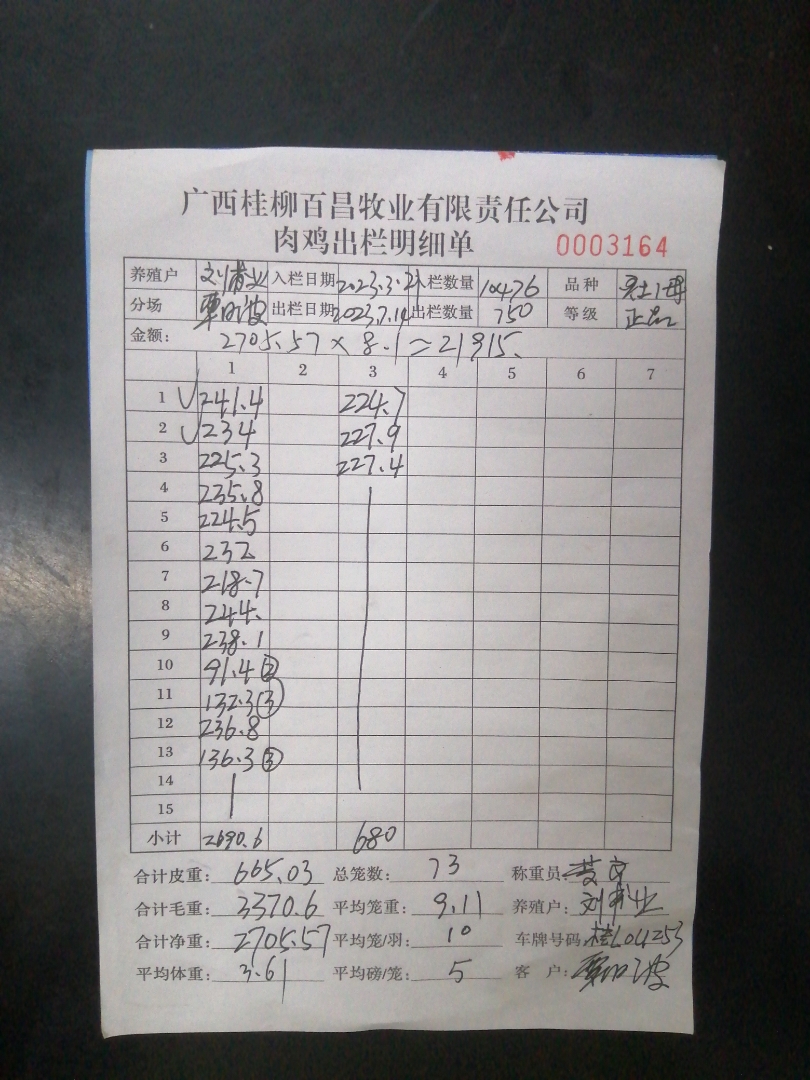 广西桂柳百昌牧业有限责任公司
肉鸡出栏明细单 0003164
养殖户 入栏日期 2023.3.21 入栏数量 10476 品种
分场 出栏日期 2023.7.14 出栏数量 750 等级 正品
金额: 2705.57 × 8.1 = 21915.
1 2 3 4 5 6 7
1 √ 241.4 224.7
2 √ 234 227.9
3 225.3 227.4
4 235.8
5 224.5
6 232
7 218.7
8 244.
9 238.1
10 91.4 ②
11 132.3 ③
12 236.8
13 136.3 ③
14
15
小计 2690.6 680
合计皮重: 665.03 总笼数: 73 称重员:
合计毛重: 3370.6 平均笼重: 9.11 养殖户:
合计净重: 2705.57 平均笼/羽: 10 车牌号码: 桂L04253
平均体重: 3.61 平均磅/笼: 5 客户: